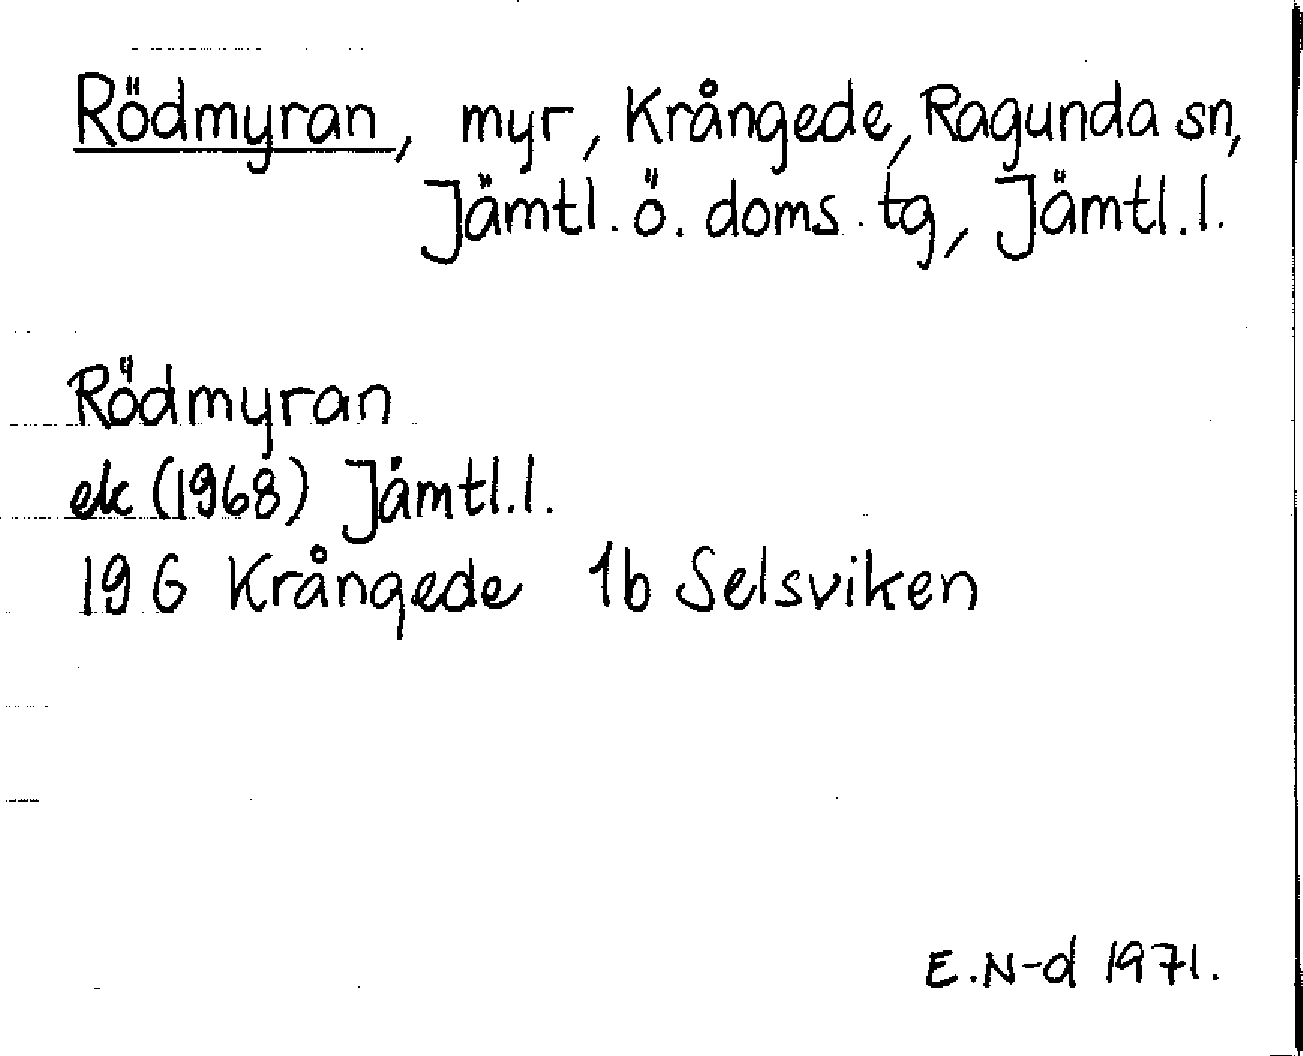 Rödmyran, myr, Krångede, Ragunda sn,
Jämtl. ö. doms. tg, Jämtl. l.
Rödmyran
ek (1968) Jämtl. l.
19 G Krångede 1b Selsviken
E.N-d 1971.